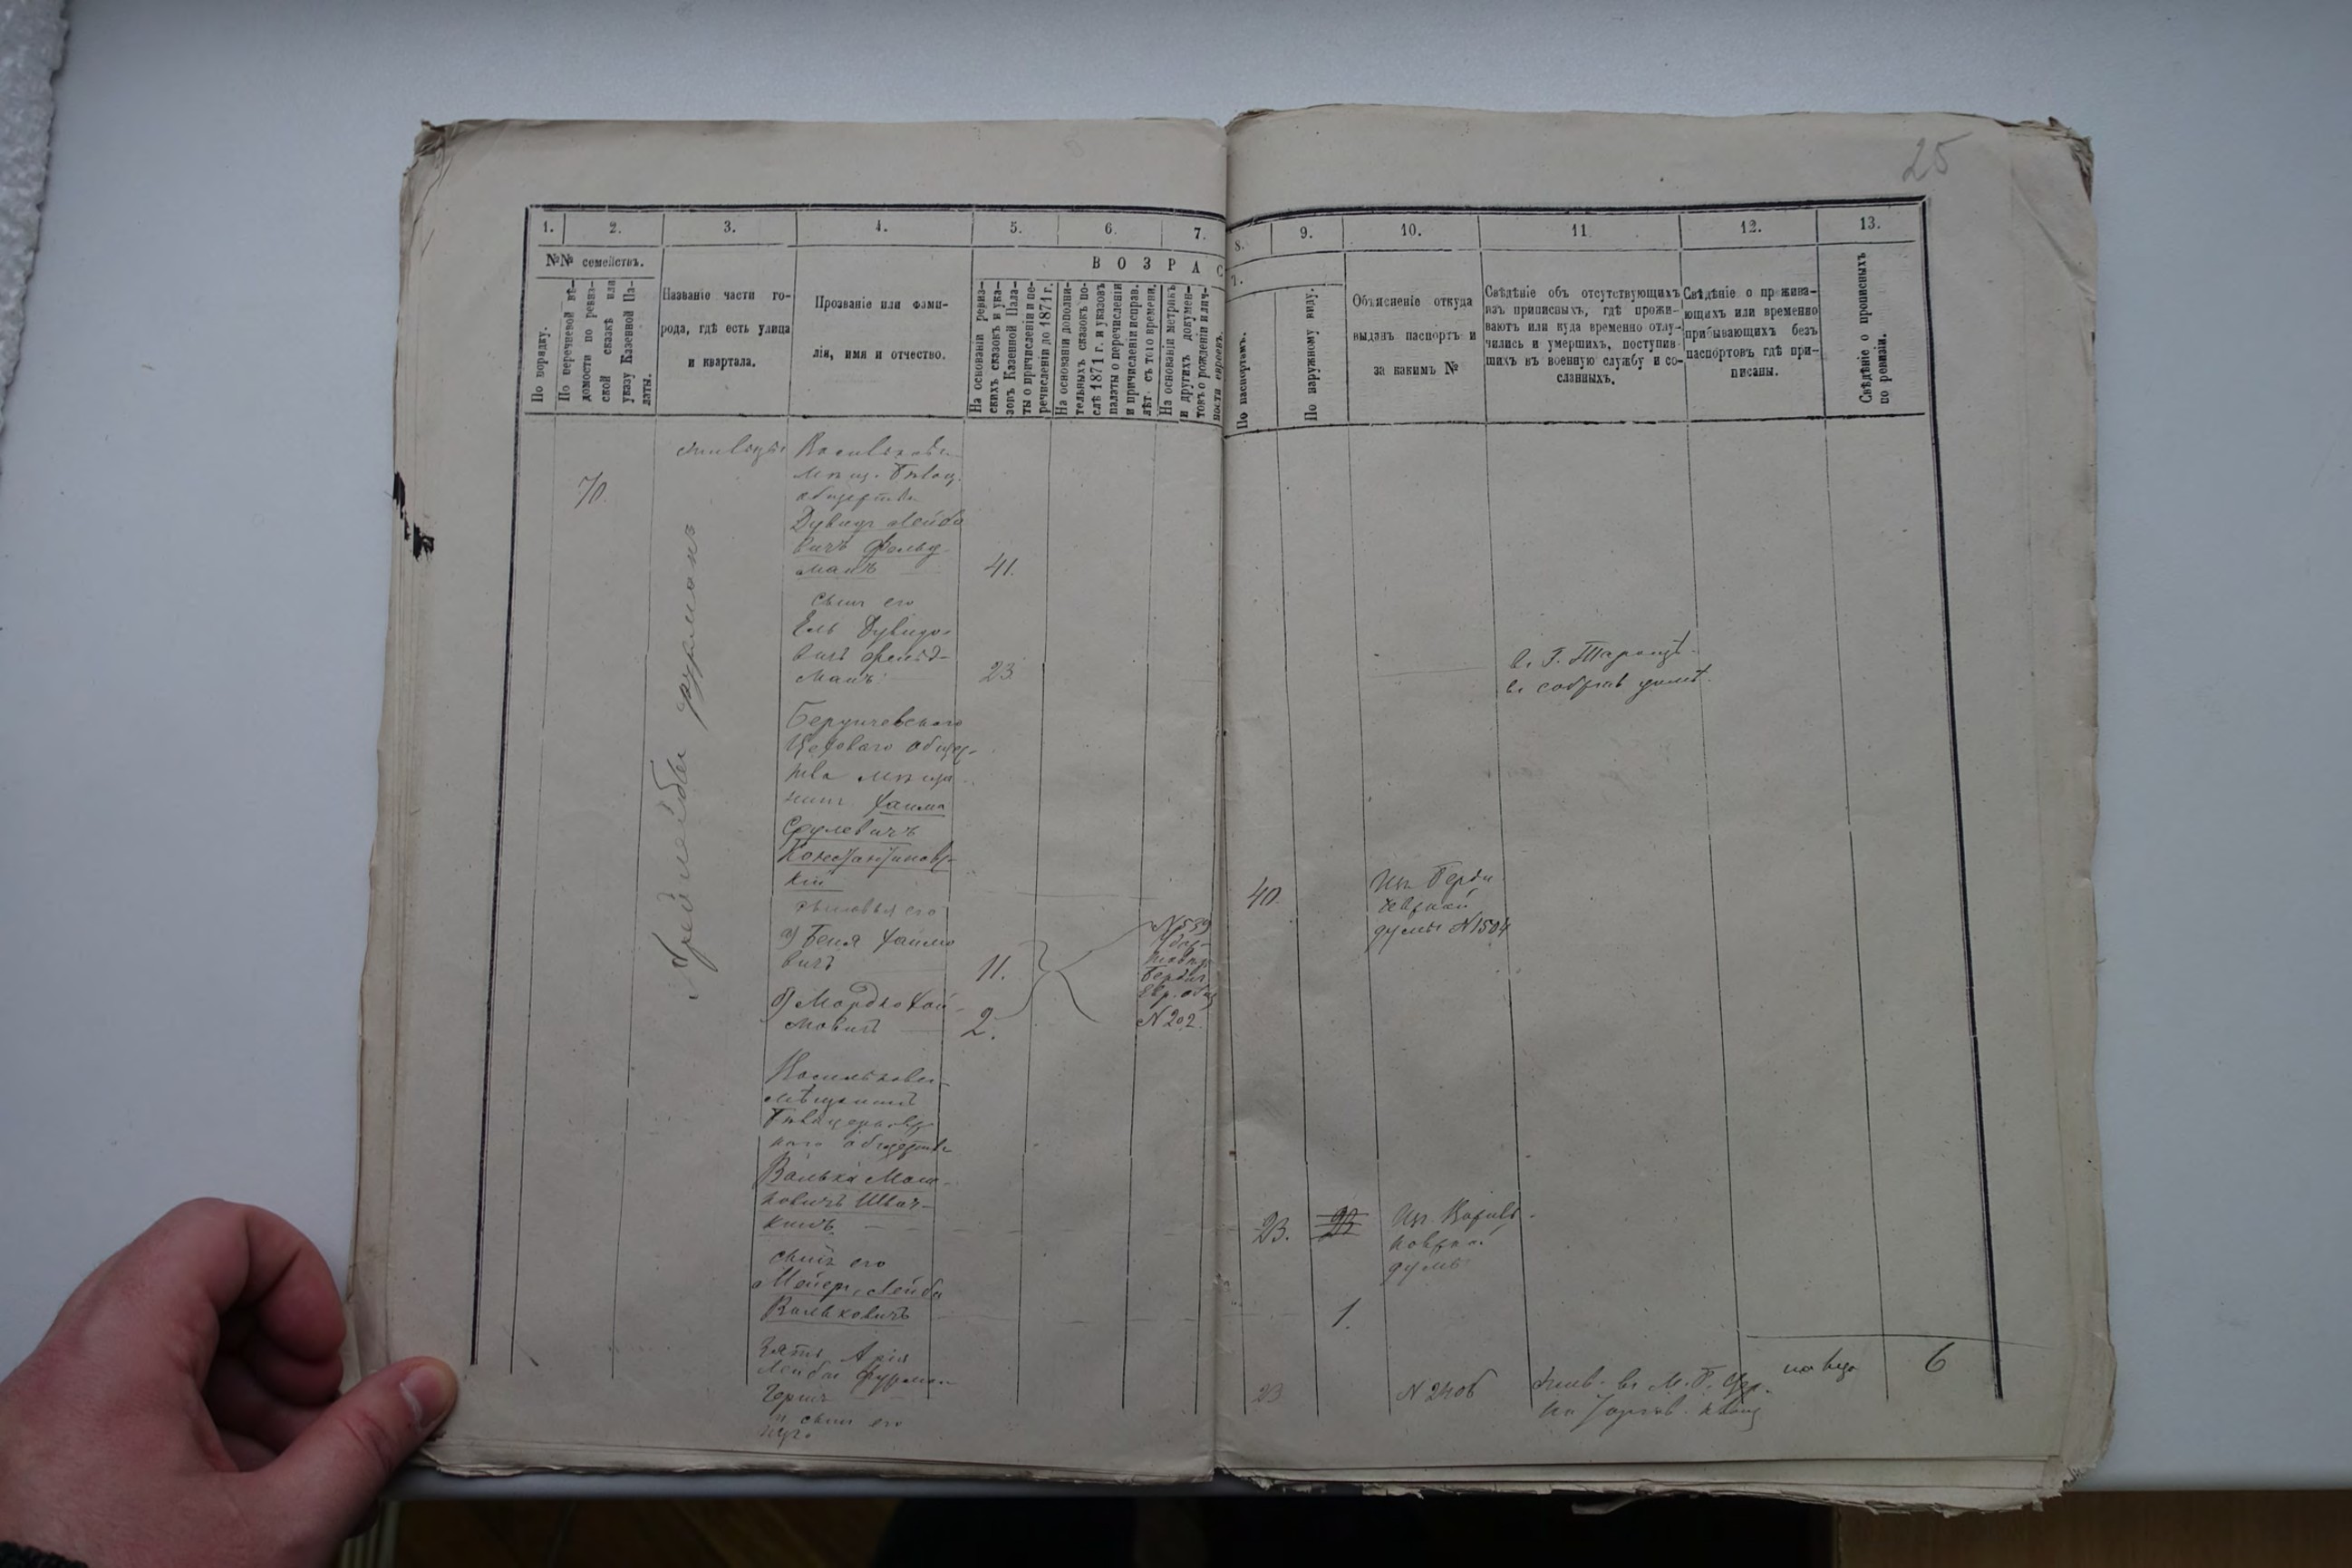 25
1.
2.
3.
4.
5.
6.
7.
8.
9.
10.
11.
12.
13.
№№ семействъ.
ВОЗРАС
Т.
По порядку.
По перечневой вѣ-
домости по ревиз-
ской сказкѣ или
указу Казенной Па-
латы.
Названіе части го-
рода, гдѣ есть улица
и квартала.
Прозваніе или фами-
лія, имя и отчество.
На основаніи ревиз-
скихъ сказокъ и ука-
зовъ Казенной Пала-
ты о причисленіи и пе-
речисленіи до 1871 г.
На основаніи дополни-
тельныхъ сказокъ по-
слѣ 1871 г. и указовъ
палаты о перечисленіи
и причисленіи исправ.
лѣт. съ того времени.
На основаніи метрикъ
и другихъ докумен-
товъ о рожденіи и лич-
ности евреевъ.
По паспортамъ.
По наружному виду.
Объясненіе откуда
выданъ паспортъ и
за какимъ №
Свѣдѣніе объ отсутствующихъ
изъ приписныхъ, гдѣ прожи-
ваютъ или куда временно отлу-
чились и умершихъ, поступив-
шихъ въ военную службу и со-
сланныхъ.
Свѣдѣніе о прожива-
ющихъ или временно
прибывающихъ безъ
паспортовъ гдѣ при-
писаны.
Свѣдѣніе о прописныхъ
по ревизіи.
70.
Васильков
общества
Дувидъ Лейбо
вичъ Фельд
манъ
41.
сынъ его
Ель Дувидо-
вичъ Фельд-
манъ
23
в г. Таращѣ
в собств домѣ
Арій Лейба Фурманъ
Бердичевскаго
Цеховаго общес-
тва мѣща
нинъ Хаимъ
Срулевичъ
Константиновс-
кій
40.
Из Берди
чевской
думы № 1504
сыновья его
а) Беня Хаимо
вичъ
11.
б) Мордко Хай-
мовичъ
2.
№ 559
Бердич
Евр. общ
№ 202
Васильков
мѣщанинъ
Бѣлоцерковс
каго общества
Валько Мош-
ковичъ Швач-
кинъ
23.
23
Из Василь-
ковской
думы
сынъ его
Мейеръ Лейба
Вальковичъ
1.
зять Арія
Лейбы Фурман
Гершъ
и сынъ его
23
№ 2406
жив. въ М. Б. Цер.
на лицо
6